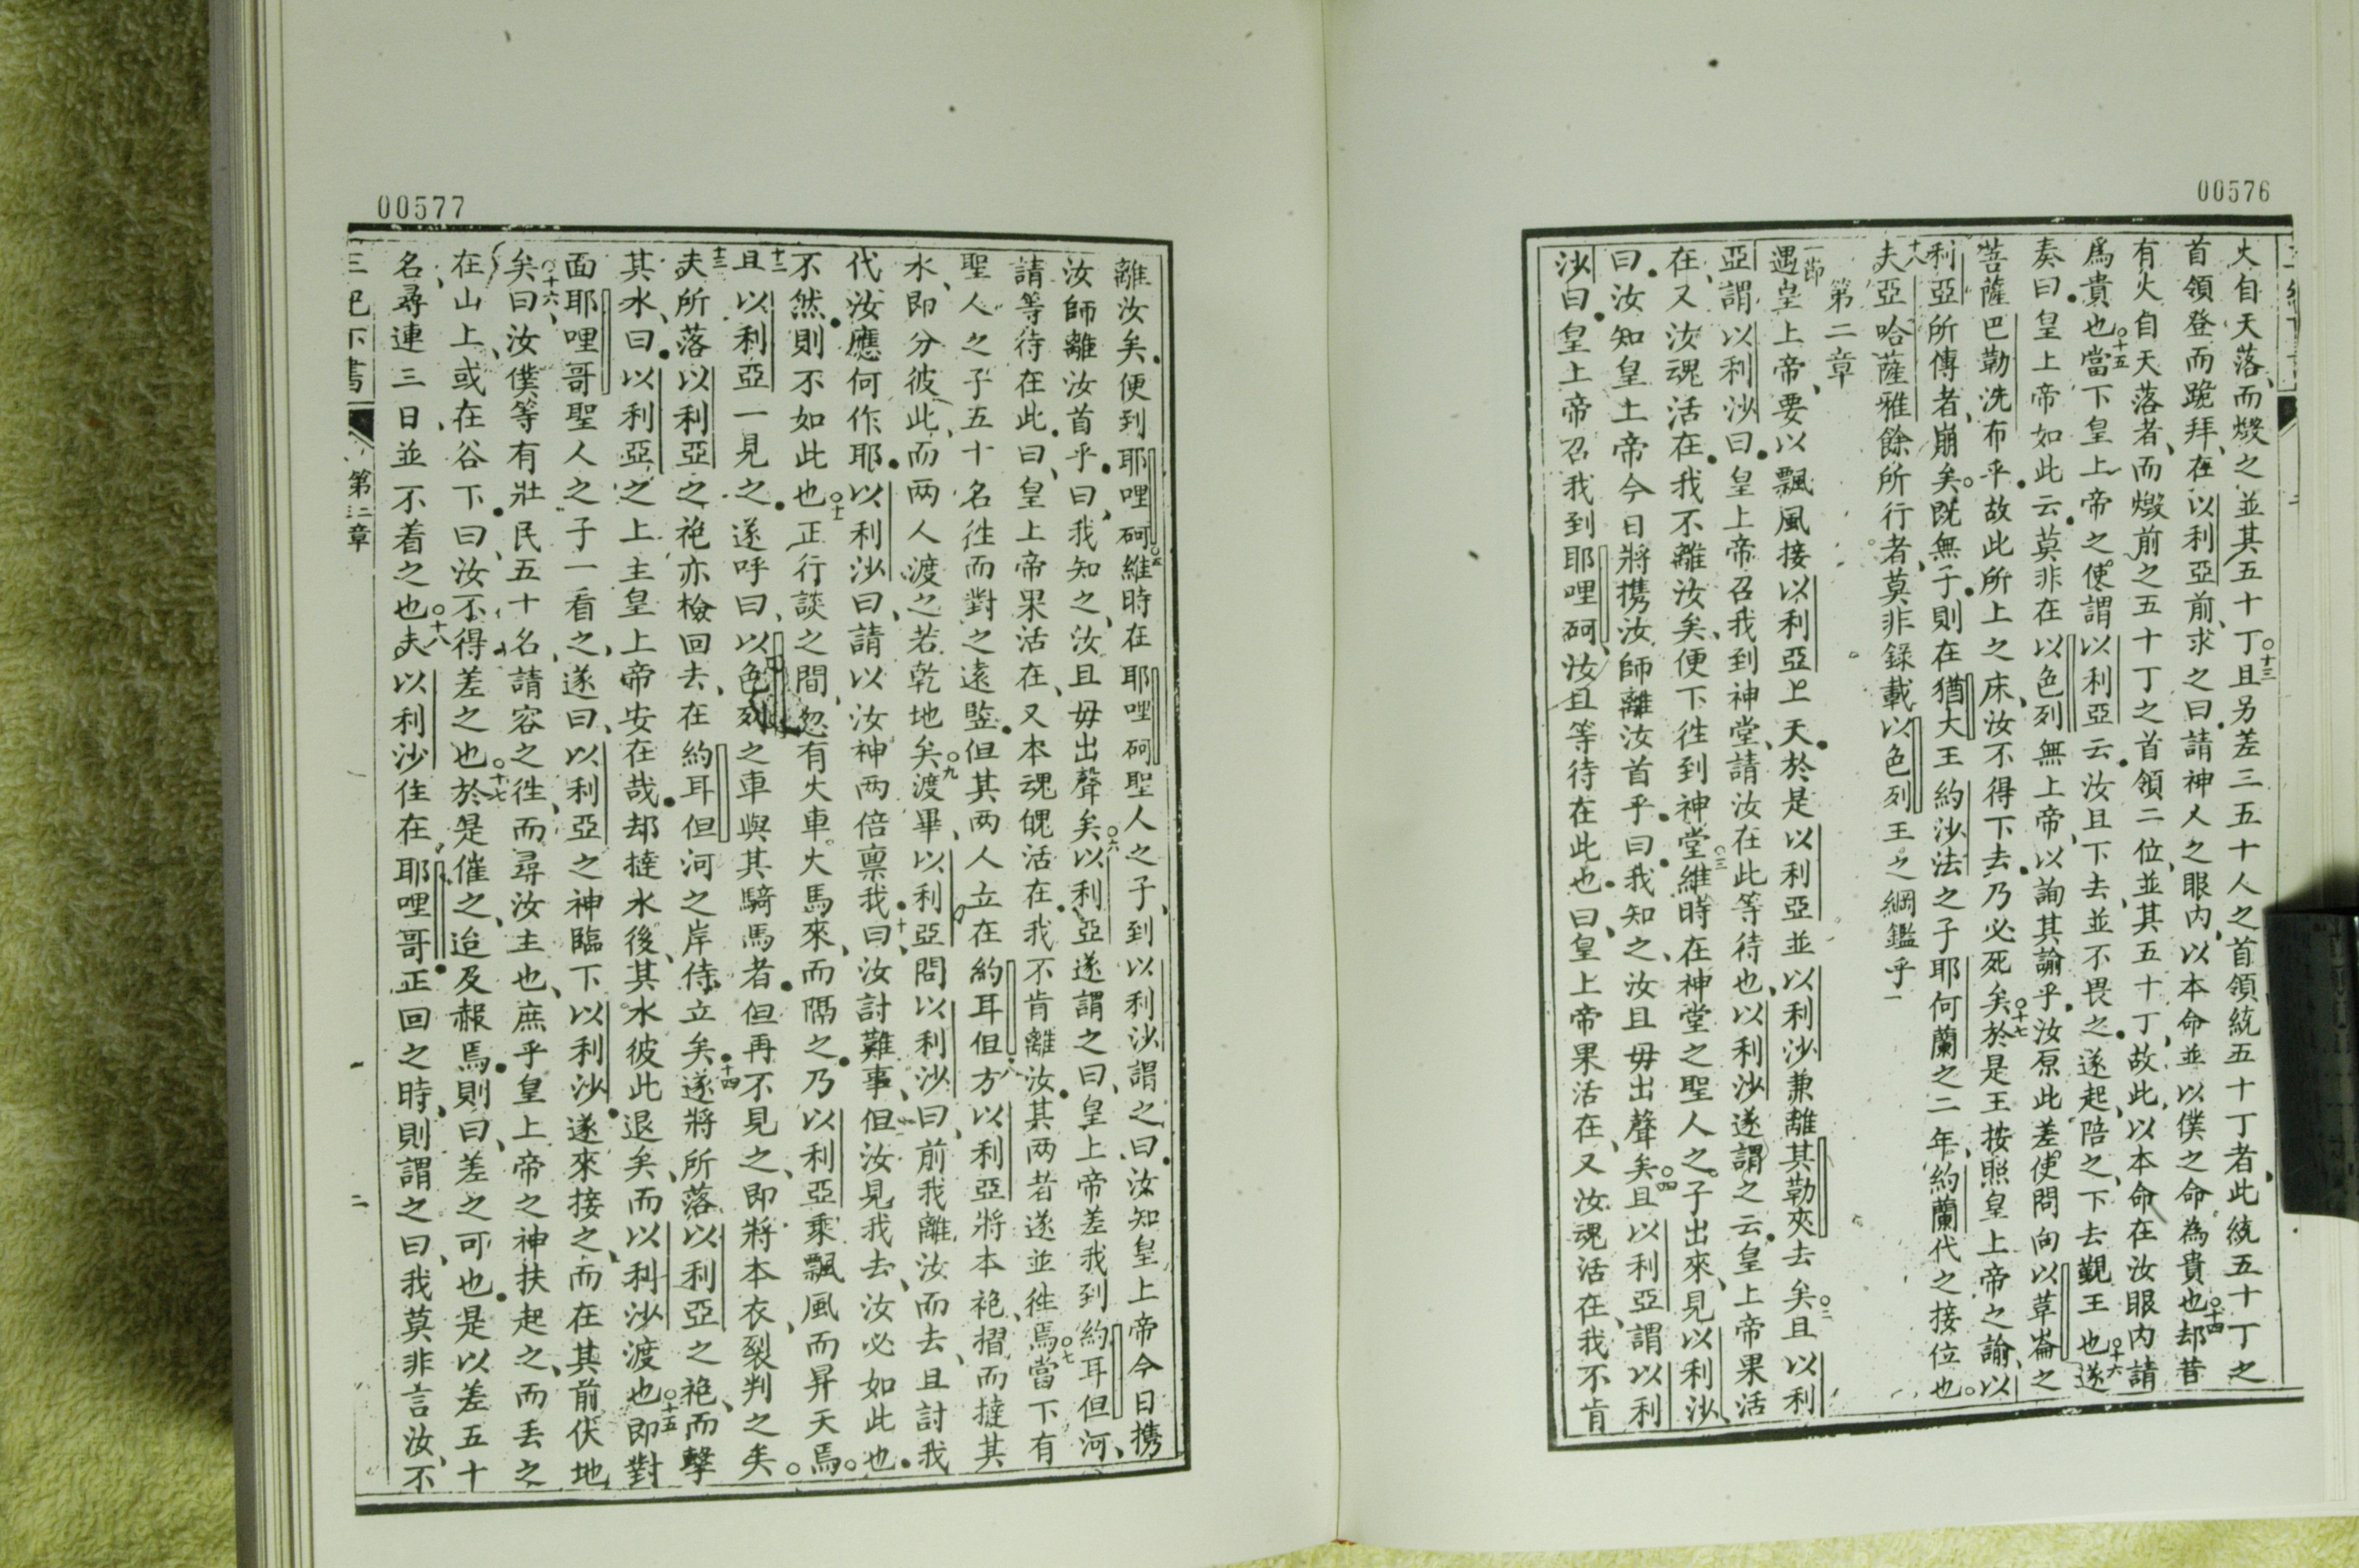 00576
火自天落、而燬之並其五十丁。十三且另差三五十人之首領統五十丁者、此統五十丁之
首領登而跪拜、在以利亞前、求之曰、請神人之眼内、以本命並以僕之命為貴也。十四却昔
有火自天落者、而燬前之五十丁之首領二位、並其五十丁、故此、以本命在汝眼内請
為貴也。十五當下皇上帝之使、謂以利亞云、汝且下去、並不畏之、遂起、陪之、下去覲王也。十六遂
奏曰、皇上帝如此云、莫非在以色列無上帝、以詢其諭乎、汝原此差使問向以革崙之
菩薩巴勒洗布乎、故此所上之床、汝不得下去、乃必死矣。十七於是王按照皇上帝之諭、以
利亞所傳者、崩矣。既無子、則在猶大王約沙法之子耶何蘭之二年、約蘭代之接位也。
十八夫亞哈薩雅餘所行者、莫非錄載以色列王之綱鑑乎
第二章
一節遇皇上帝、要以飄風接以利亞上天、於是以利亞並以利沙兼離其勒夾去矣。二且以利
亞謂以利沙曰、皇上帝召我到神堂、請汝在此等待也、以利沙遂謂之云、皇上帝果活
在、又汝魂活在、我不離汝矣、便下徃到神堂。三維時在神堂之聖人之子出來、見以利沙、
曰、汝知皇上帝今日將携汝師離汝首乎、曰、我知之、汝且毋出聲矣。四且以利亞謂以利
沙曰、皇上帝召我到耶哩砢、汝且等待在此也、曰、皇上帝果活在、又汝魂活在、我不肯
00577
離汝矣、便到耶哩砢。五維時在耶哩砢聖人之子、到以利沙謂之曰、汝知皇上帝今日携
汝師離汝首乎、曰、我知之、汝且毋出聲矣。六以利亞遂謂之曰、皇上帝差我到約耳但河、
請等待在此、曰、皇上帝果活在、又本魂魄活在、我不肯離汝、其两者遂並徃焉。七當下有
聖人之子五十名徃而對之遠監、但其两人立在約耳但方。八以利亞將本袍摺而撻其
水、即分彼此、而两人渡之若乾地矣。九渡畢、以利亞問以利沙曰、前我離汝而去、且討我
代汝應何作耶、以利沙曰、請以汝神两倍禀我。十曰、汝討難事、但汝見我去、汝必如此也、
不然、則不如此也。十一正行談之間、忽有火車火馬來、而隔之、乃以利亞乘飄風而昇天焉。
十二且以利亞一見之、遂呼曰、以色列之車與其騎馬者、但再不見之、即將本衣裂判之矣。
十三夫所落以利亞之袍亦檢回去、在約耳但河之岸侍立矣。十四遂將所落以利亞之袍、而擊
其水、曰、以利亞之上主皇上帝安在哉、却撻水後、其水彼此退矣、而以利沙渡也。十五即對
面耶哩哥聖人之子一看之、遂曰、以利亞之神臨下以利沙、遂來接之、而在其前伏地
矣。十六曰、汝僕等有壯民五十名、請容之徃、而尋汝主也、庶乎皇上帝之神扶起之、而丢之
在山上、或在谷下、曰、汝不得差之也。十七於是催之、迨及赧焉、則曰、差之可也、是以差五十
名、尋連三日並不着之也。十八夫以利沙住在耶哩哥、正回之時、則謂之曰、我莫非言汝、不
第二章
二